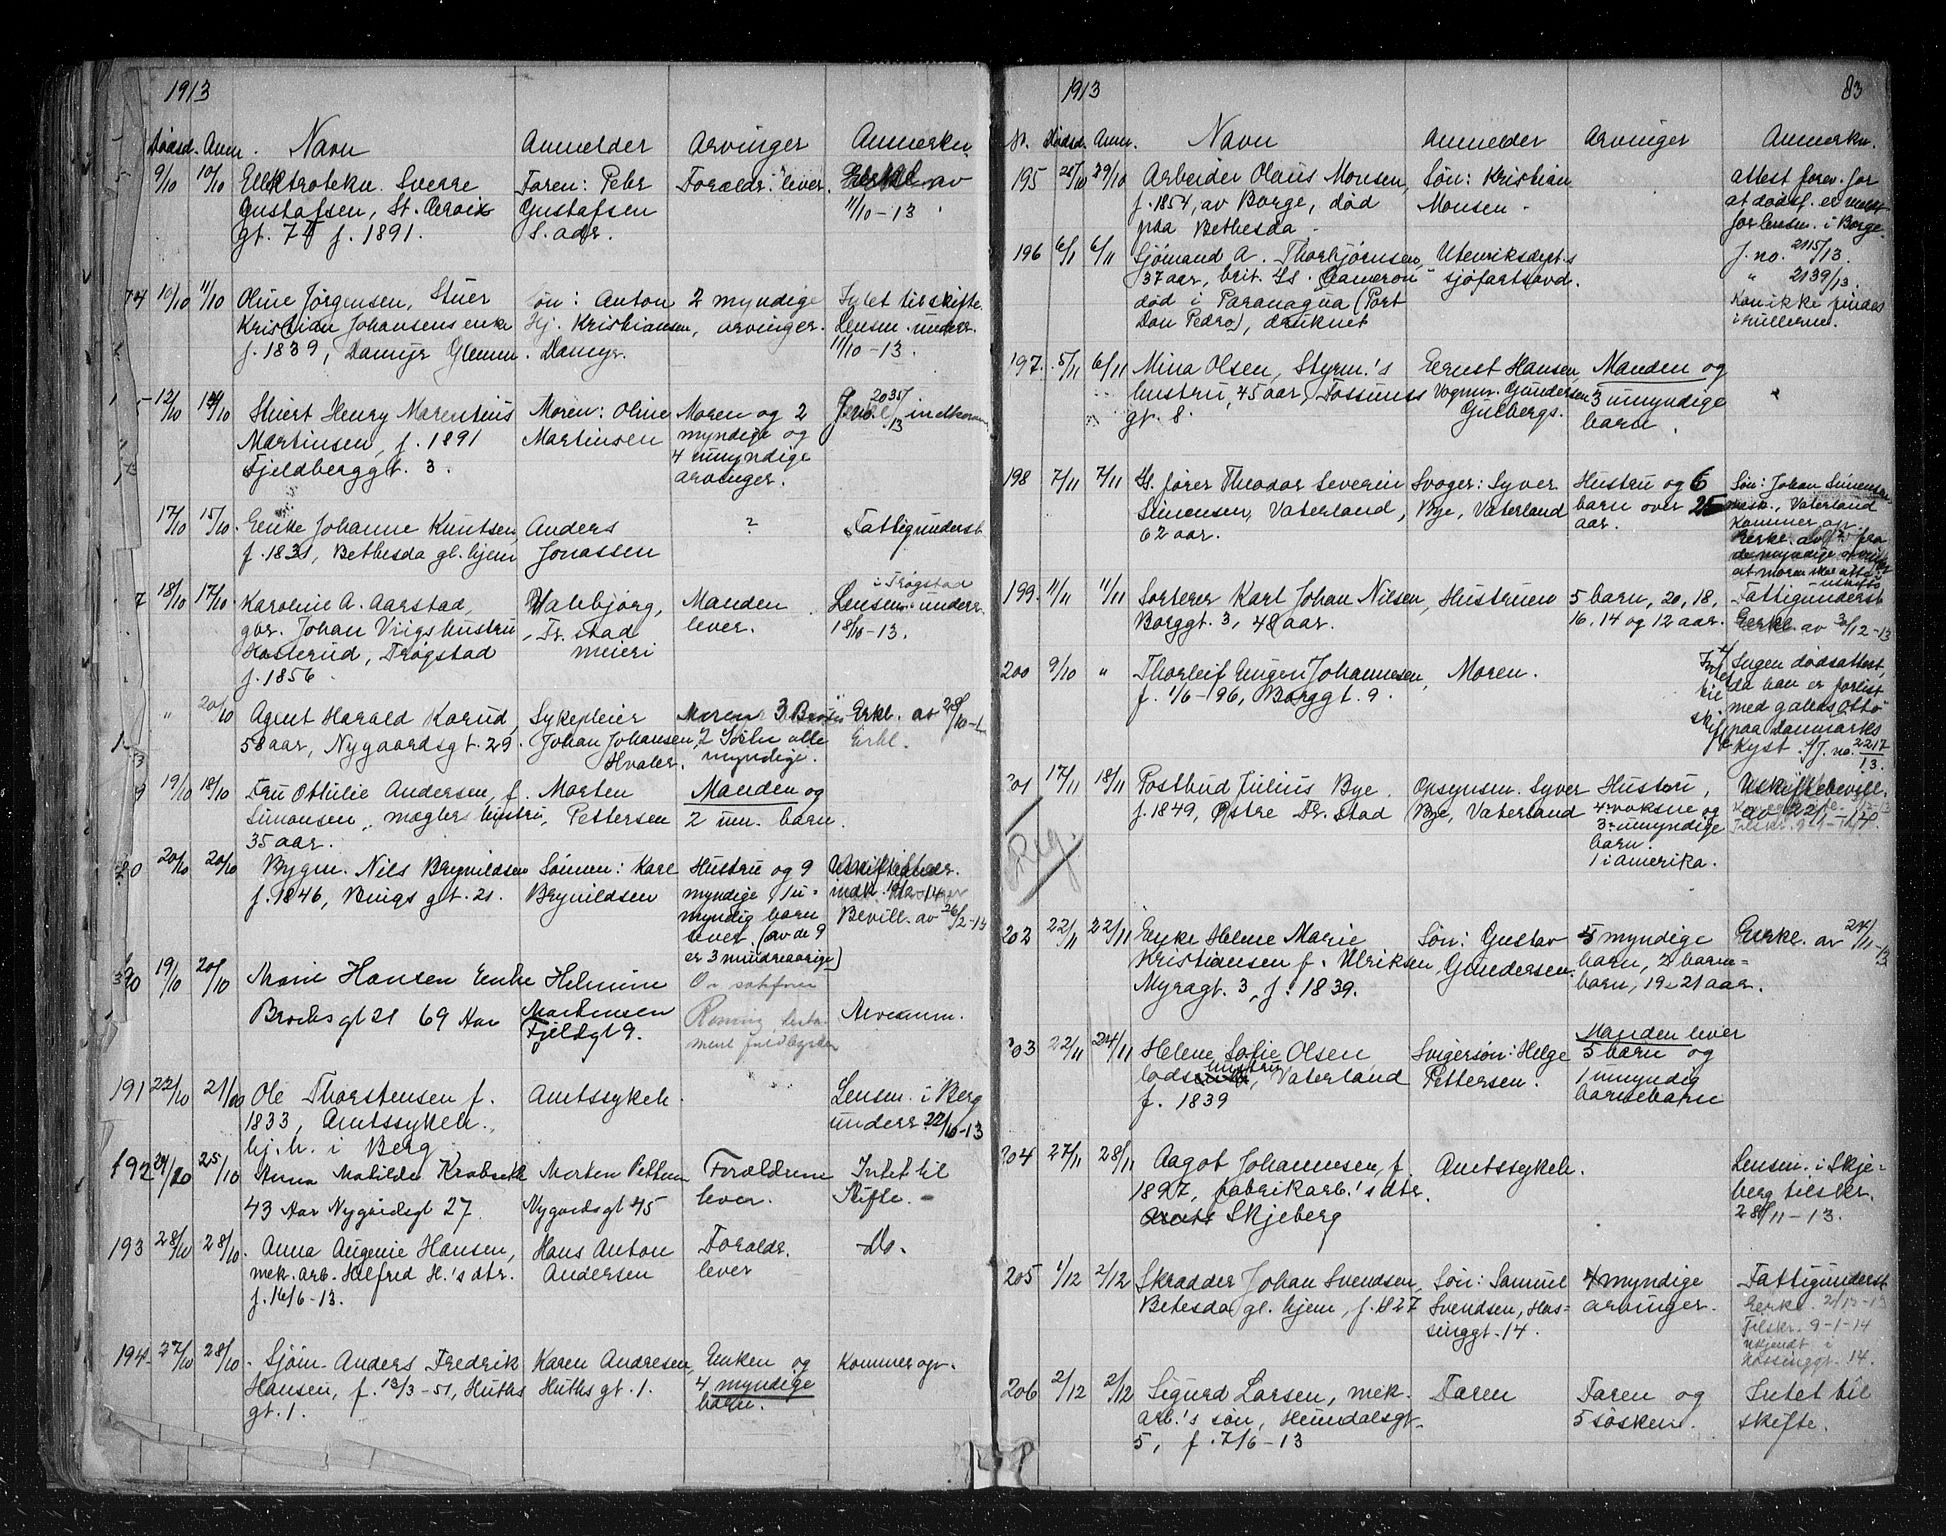 1913
Dødsd. Anm. Navn Anmelder Arvinger Anmerkn.
9/10 10/10 Elektrotekn. Sverre Faren: Petr Foreldr. lever. Erkl. av
Gustafsen, St. Gustafsen 11/10-13
gt. 74 f. 1891. s. adr.
10/10 11/10 Oline Jørgensen, Stuer Søn: Anton 2 myndige Intet til skifte.
Kristian Johansens enke Hj. Kristiansen, arvinger. Lensm. underr.
f. 1839, Damyr Glemm. Damyr. 11/10-13.
12/10 14/10 Stuert Henry Marentius Moren: Oline Moren og 2 J. no. 2035/13 indkom
Martinsen, f. 1891 Martinsen myndige og
Fjeldberggt. 3. 4 umyndige
arvinger.
17/10 15/10 Enke Johanne Knutsen Anders ? Fattigunderst.
f. 1831, Bethesda gl. hjem Jonassen
18/10 17/10 Karoline A. Aarstad, Manden i Trøgstad
gbr. Johan Viigs hustru Fr. stad lever. Lensm. underr.
Trøgstad meieri 18/10-13.
f. 1856
" 20/10 Agent Harald Korud, Sykepleier Moren 3 Brødre Erkl. av 28/10-13
58 aar, Nygaardsgt. 29. Johan Johansen, 2 alle Erkl.
Hvaler. myndige.
19/10 18/10 Fru Ottilie Andersen, f. Morten Manden og
Simonsen, mæglers hustru, Pettersen 2 um. barn.
35 aar.
20/10 20/10 Bygm. Nils Brynildsen Sønnen: Karl Hustru og 9
f. 1846, Bingsgt. 21. Brynildsen myndige, 1 u-
myndig barn Bevill. av 26/2-14
lever. (av de 9
er 3 mindreaarige)
190 19/10 20/10 Marie Hansen Enke Helmine
Brochsgt 21 69 Aar Martinsen Arveanm.
Fjeldgt 9.
191 22/10 21/10 Ole Thorstensen f. Amtssykeh. Lensm. i Berg
1833, Amtssykeh. underr. 22/10-13
hj. h. i Berg
192 24/10 25/10 Anna Matilde Morten Pettersen Forældrene Intet til
43 Aar Nygårdsgt 27. Nygårdsgt 45 lever. Skifte.
193 28/10 28/10 Anna Augenie Hansen, Hans Anton Foreldr. Do.
mek. arb. Hilfred H.'s dtr. Andersen lever
f. 16/6-13.
194 27/10 28/10 Sjøm. Anders Fredrik Karen Andresen, Enken og Kommer op.
Hansen, f. 13/3-51, Huths Huthsgt. 1. 4 myndige
gt. 1. barn.
1913 83
N. Dødsd. Anm. Navn Anmelder Arvinger Anmerkn.
195 28/10 29/10 Arbeider Olaus Monsen, Søn: Kristian attest forev. for
f. 1854, av Borge, død Monsen. at dødsf. er meldt
paa Bethesda. for lensm. i Borge.
196 6/11 6/11 Sjømand A. Thorbjørnsen, Utenriksdept.s J. no. 2115/13.
37 aar, brit. Ss. "Cameron" sjøfartsavd. " 2139/13.
død i Paranagua (Port Kan ikke findes
Don Pedro), druknet i rullerne.
197. 5/11 6/11 Mina Olsen, Styrm.'s Ernst Hansen, Manden og
hustru, 45 aar, Fossums Vognm. Gundersen 3 umyndige
gt. 8. Gulbergs. barn.
198 7/11 7/11 Ss. fører Theodor Severin Svoger: Syver Hustru og 6 Søn: Johan Simonsen
Simonsen, Vaterland, Bye, Vaterland barn over 25 mask., Vaterland
62 aar. aar. kommer op.
199. 11/11 11/11 Sorterer Karl Johan Nilsen, Hustruen 5 barn, 20, 18, Fattigunderst.
Borggt. 3, 48 aar. 16, 14 og 12 aar. Erkl. av 3/12-13
200 9/10 " Thorleif Eugen Johannesen, Moren. Intet til skifte Ingen dødsattest,
f. 1/6-96, Borggt. 9. da han er forlist
med galeas "Otto"
paa Danmarks
kyst. J. no. 2217/13.
201 17/11 18/11 Postbud Julius Bye, Opsynsm. Syver Hustru, Uskiftebevill.
f. 1849, Østre Fr. stad Bye, Vaterland 4 voksne og
Reg. 3 umyndige
barn.
1 i Amerika.
202 22/11 22/11 Enke Helene Marie Søn: Gustav 5 myndige Erkl. av 24/11-13
Kristiansen f. Ulriksen, Gundersen. barn, 2 barne-
Myragt. 3, f. 1839. barn, 19 - 21 aar.
203 22/11 24/11 Helene Sofie Olsen Svigersøn: Helge Manden lever
lods hustru, Vaterland Pettersen. 5 barn og
f. 1839 1 umyndig
barnebarn
204 27/11 28/11 Aagot Johannesen, f. Amtssykeh. Lensm. i Skje-
1897, fabrikarb.'s dtr. berg tilskr.
Skjeberg 28/11-13.
205 1/12 2/12 Skrædder Johan Svendsen, Søn: Samuel 4 myndige Fattigunderst.
Betesda gl. hjem, f. 1827 Svendsen, Has- arvinger. Erkl. 2/12-13
singgt. 14. Tilskr. 9-1-14
ukjendt i
Hassinggt. 14.
206 2/12 2/12 Sigurd Larsen, mek. Faren Faren og Intet til
arb.'s søn, Heimdalsgt. 5 søsken. skifte.
5, f. 7/6-13